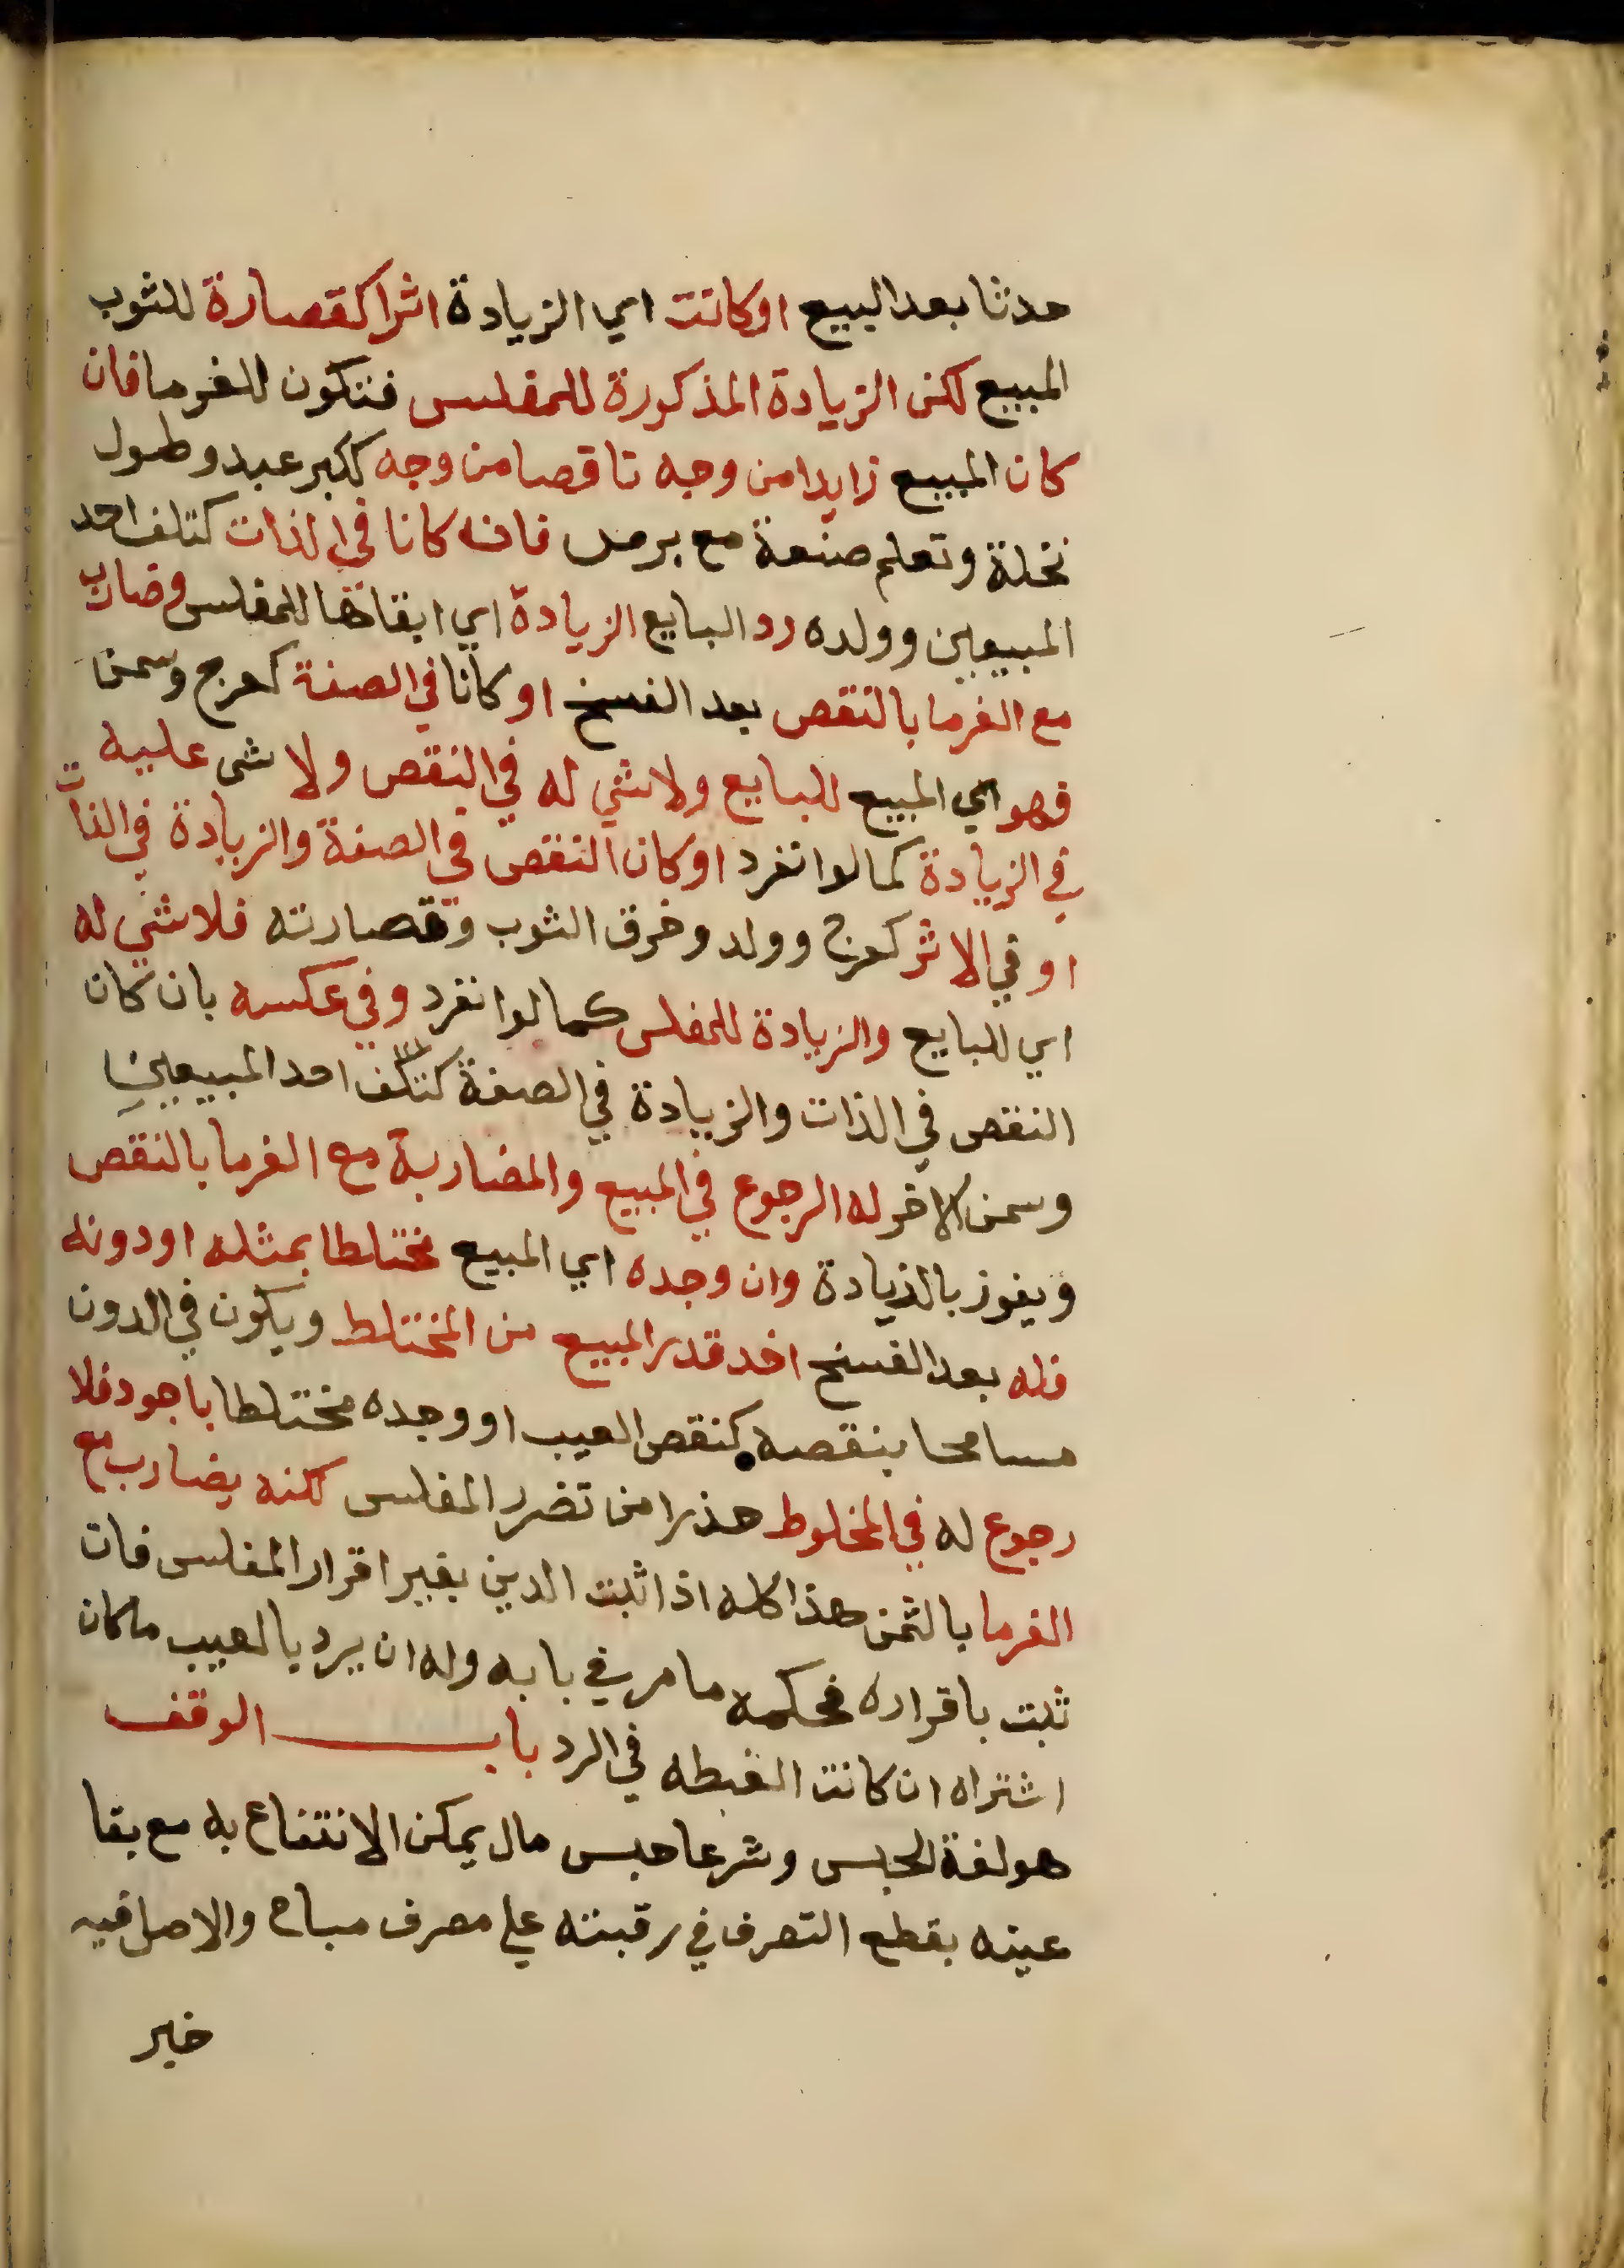 حدثا بعد البيع او كانت اي الزيادة اثرا كقصارة للثوب
المبيع لكن الزيادة المذكورة للمفلس فتكون للغرما فان
كان المبيع زايدا من وجه ناقصا من وجه ككبر عبد وطول
نخلة وتعلم صنعة مع برص فان كانا في الذات كتلف احد
المبيعين وولده رد البايع الزيادة اي ابقاها للمفلس وضارب
مع الغرما بالنقص بعد الفسخ او كانا في الصفة كعرج وسمن
فهو اي المبيع للبايع ولا شي له في النقص ولا شي عليه
في الزيادة كما لو انفرد او كان النقص في الصفة والزيادة في الذات
او في الاثر كعرج وولد وخرق الثوب وقصارته فلا شي له
اي للبايع والزيادة للمفلس كما لو انفرد وفي عكسه بان كان
النقص في الذات والزيادة في الصفة كتلف احد المبيعين
وسمن الاخر له الرجوع في المبيع والمضاربة مع الغرما بالنقص
ويفوز بالزيادة وان وجده اي المبيع مختلطا بمثله او دونه
فله بعد الفسخ اخد قدر المبيع من المختلط ويكون في الدون
مسامحا بنقصه كنقص العيب او وجده مختلطا باجود فلا
رجوع له في المخلوط حذرا من تضرر المفلس لكنه يضارب مع
الغرما بالثمن هذا كله اذا ثبت الدين بغير اقرار المفلس فان
ثبت باقراره فحكمه ما مر في بابه وله ان يرد بالعيب ما كان
اشتراه ان كانت الغبطه في الرد باب الوقف
هو لغة الحبس وشرعا حبس مال يمكن الانتفاع به مع بقا
عينه بقطع التصرف في رقبته علي مصرف مباح والاصل فيه
خبر